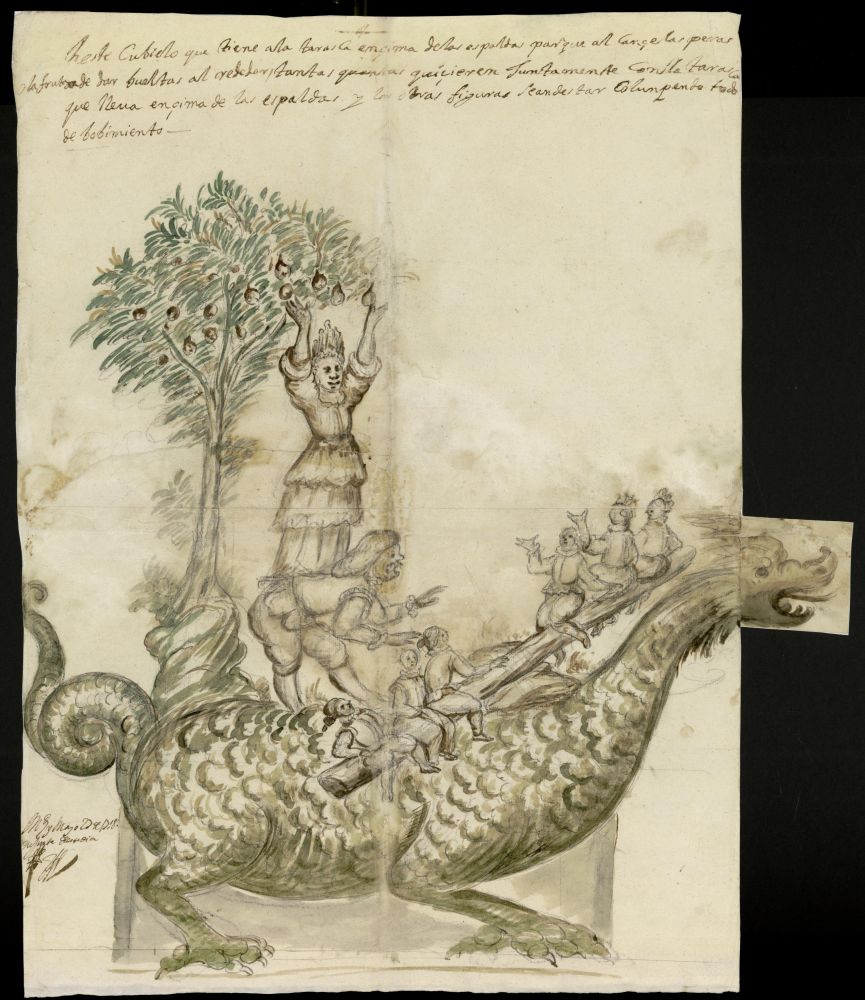 heste Cubielo que tiene ala tarasca ençima delas espaldas parȝue al cançe las peras
o la fruta a de dar bueltas al rededor, tantas quantas quicieren Juntamente Con la tarasca
que lleva ençima de las espaldas. y las otras figuras seandestar Colunpando todo
de bobimiento —
M.d y Mayo 2 de 1718.